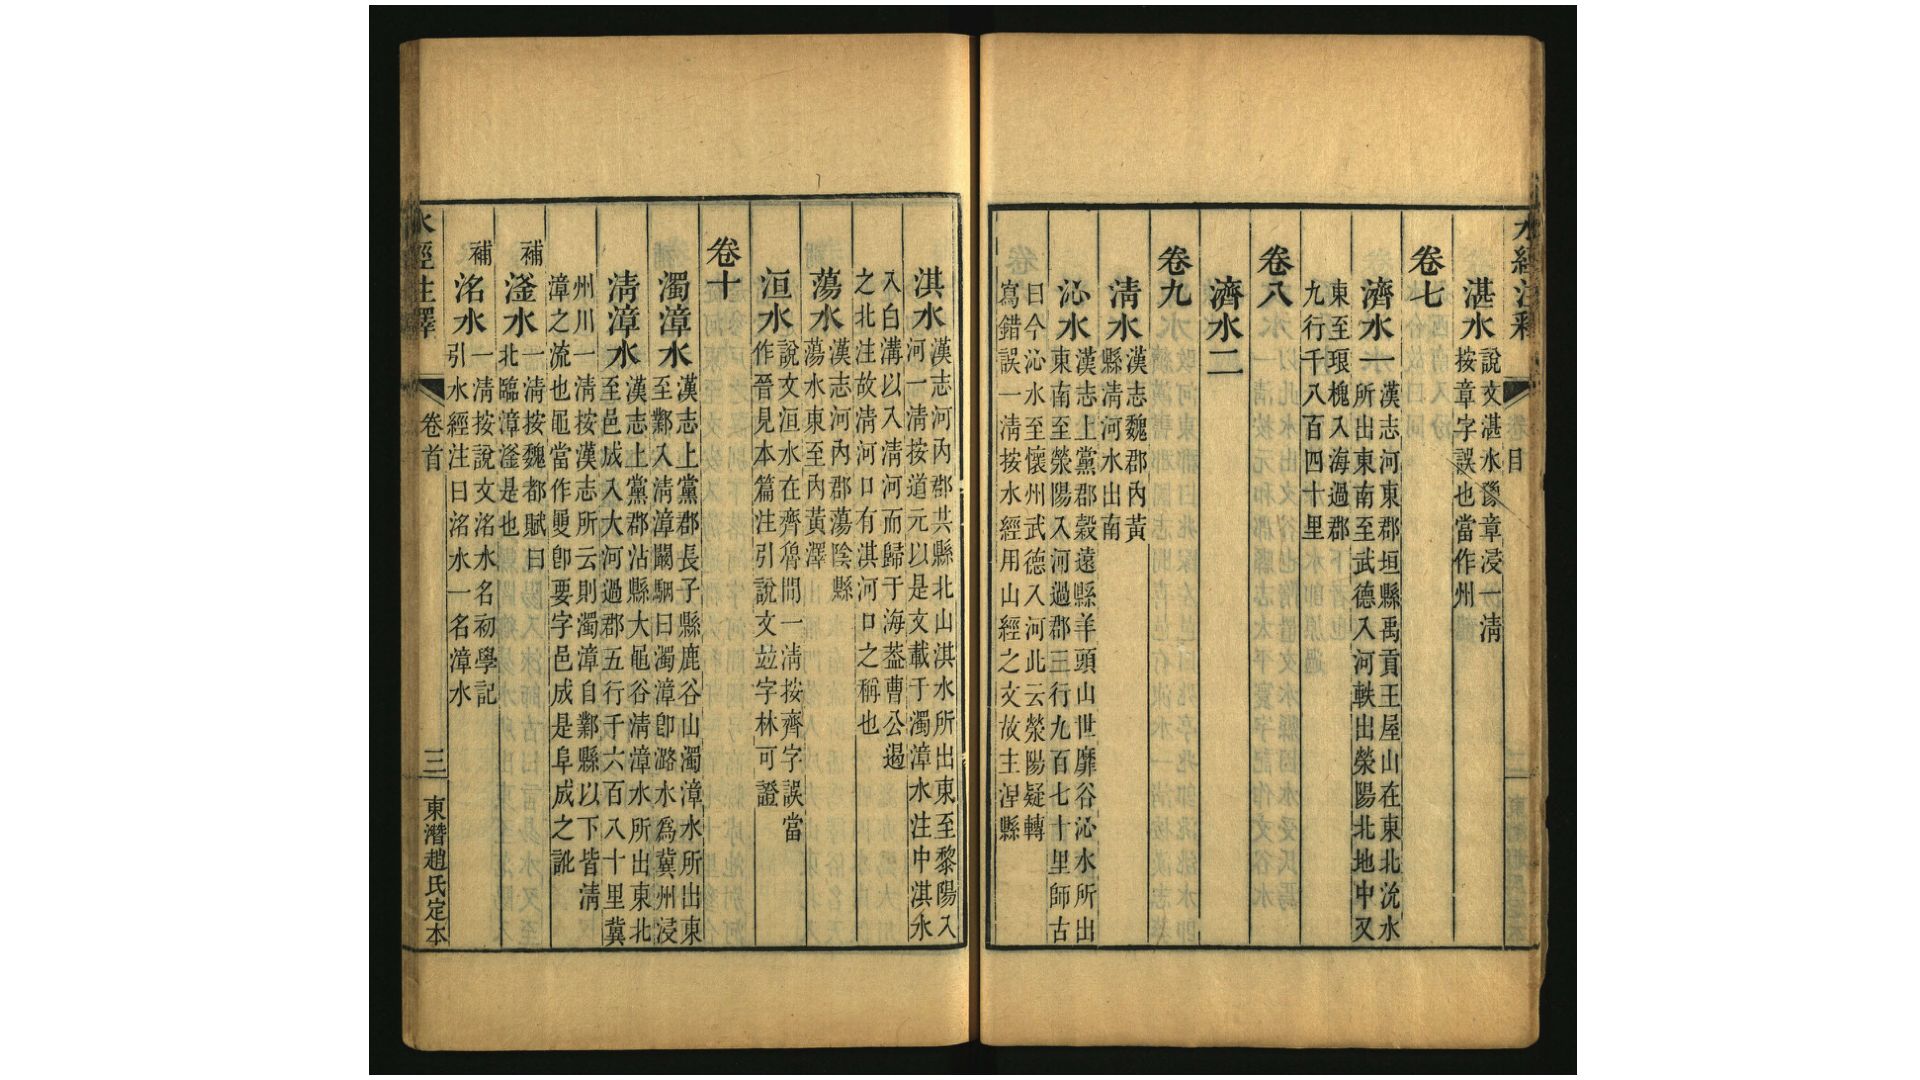 水經注釋 目
湛水 說文湛水豫章浸一清
按章字誤也當作州
卷七
濟水一 漢志河東郡垣縣禹貢王屋山在東北沇水
所出東南至武德入河軼出滎陽北地中又
東至琅槐入海過郡
九行千八百四十里
卷八
濟水二
卷九
清水 漢志魏郡內黃
縣清河水出南
沁水 漢志上黨郡穀遠縣羊頭山世靡谷沁水所出
東南至滎陽入河過郡三行九百七十里師古
曰今沁水至懷州武德入河此云滎陽疑轉
寫錯誤一清按水經用山經之文故主涅縣
淇水 漢志河內郡共縣北山淇水所出東至黎陽入
河一清按道元以是文載于濁漳水注中淇水
入白溝以入清河而歸于海葢曹公遏
之北注故清河口有淇河口之稱也
蕩水 漢志河內郡蕩陰縣
蕩水東至內黃澤
洹水 說文洹水在齊魯間一清按齊字誤當
作晉見本篇注引說文竝字林可證
卷十
濁漳水 漢志上黨郡長子縣鹿谷山濁漳水所出東
至鄴入清漳闞駰曰濁漳卽潞水爲冀州浸
清漳水 漢志上黨郡沾縣大黽谷清漳水所出東北
至邑成入大河過郡五行千六百八十里冀
州川一清按漢志所云則濁漳自鄴縣以下皆清
漳之流也黽當作卽要字邑成是阜成之訛
補滏水 一清按魏都賦曰
北臨漳滏是也
補洺水 一清按說文洺水名初學記
引水經注曰洺水一名漳水
水經注釋 卷首 三 東潛趙氏定本